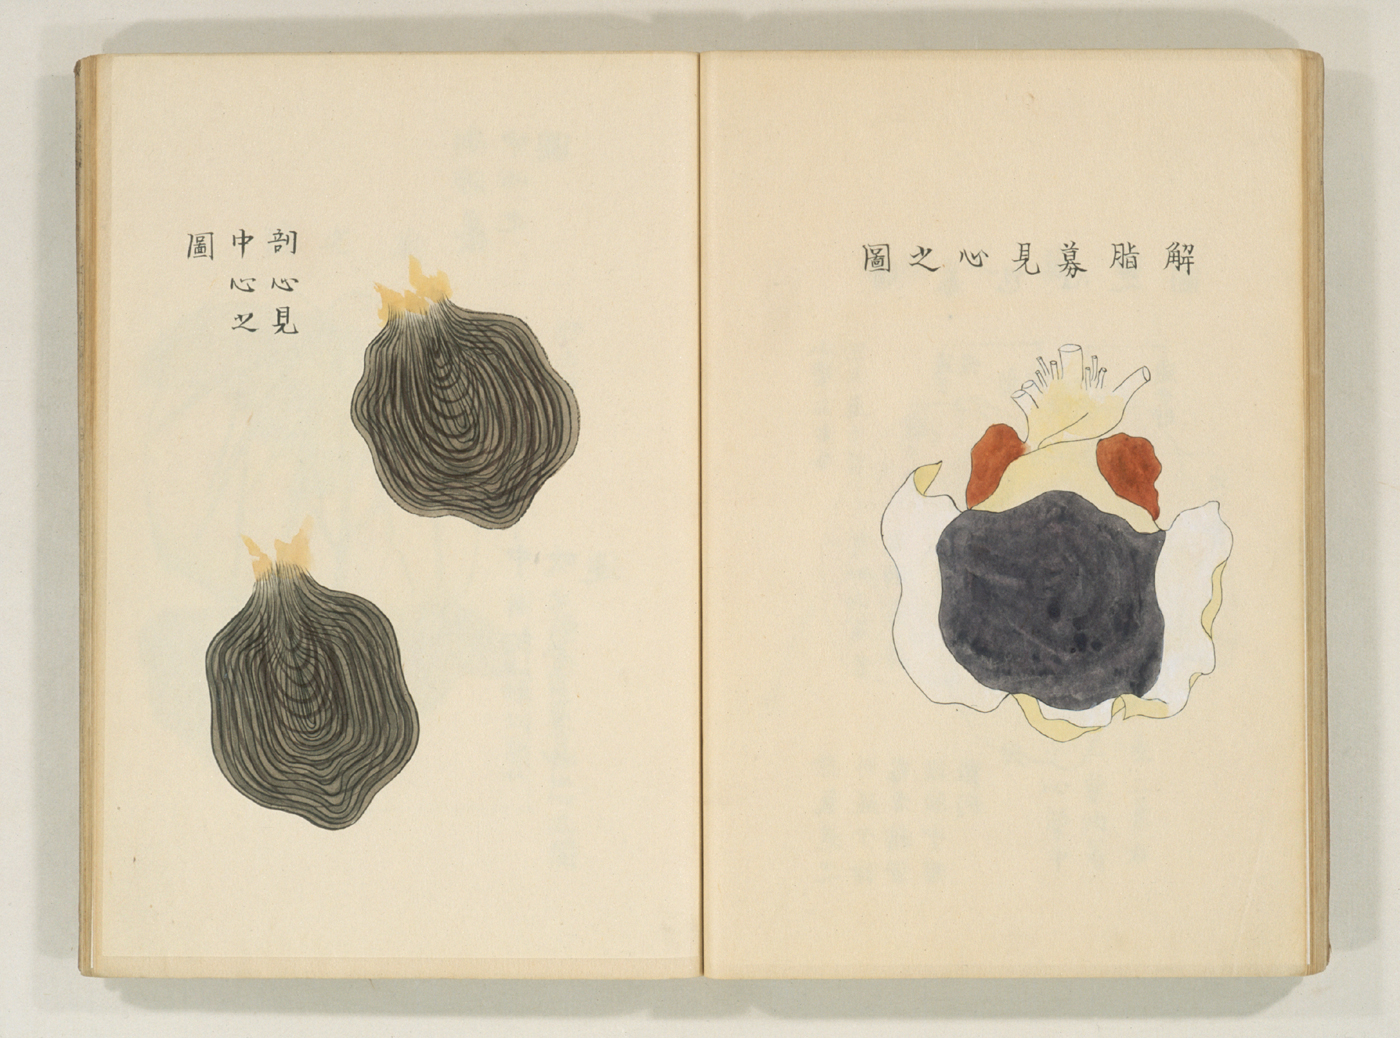 解脂募見心之圖
剖心見
中心之
圖